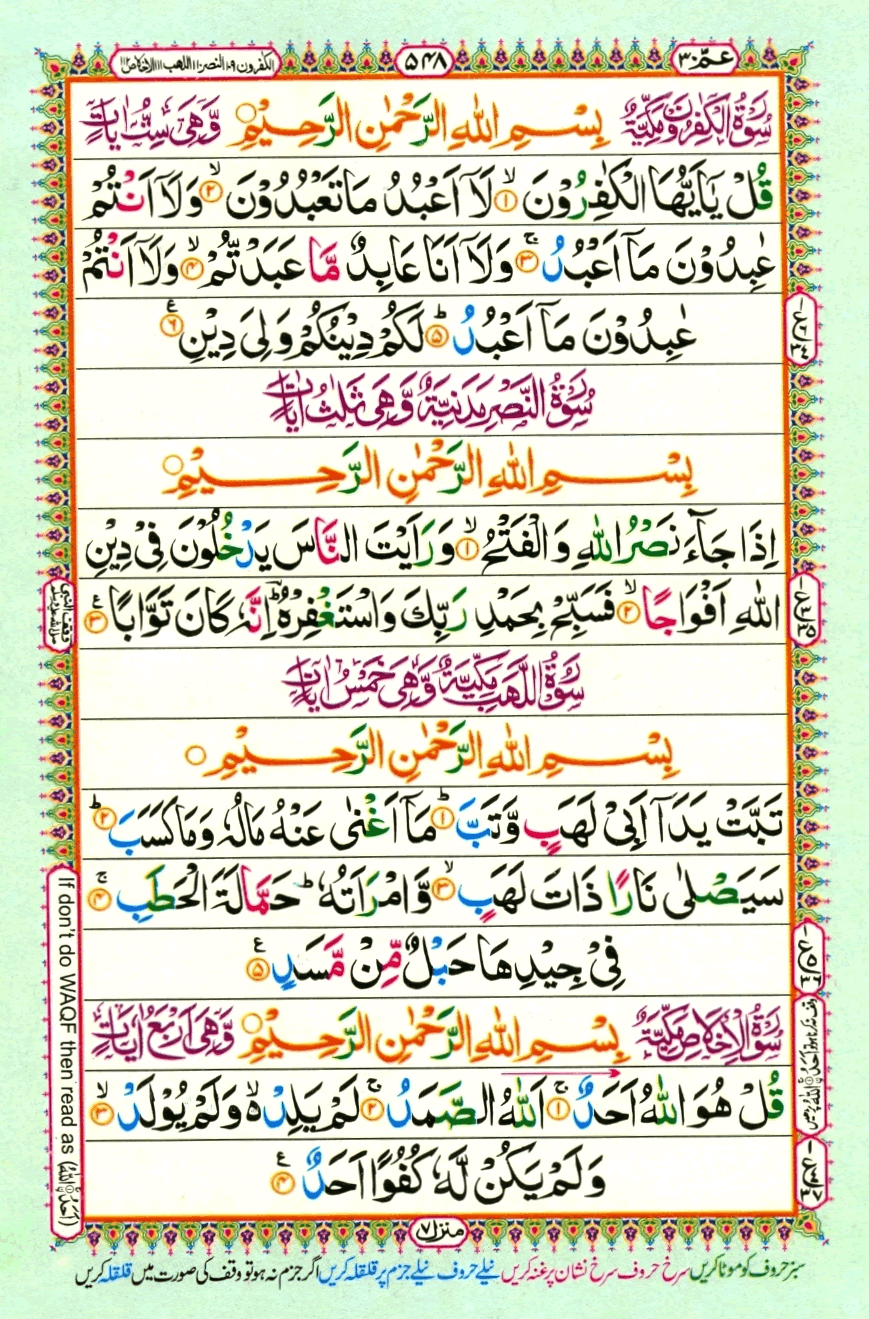 عمّ ٣٠
٥٤٨
الكفرون ١٠٩ النصر ١١٠ اللهب ١١١ الاخلاص ١١٢
سُوْرَةُ الْكٰفِرُوْنَ مَكِّيَّةٌ بِسْمِ اللّٰهِ الرَّحْمٰنِ الرَّحِيْمِ ○ وَّهِىَ سِتُّ اٰيَاتٍ
قُلْ يٰۤاَيُّهَا الْكٰفِرُوْنَ ۙ﴿۱﴾ لَاۤ اَعْبُدُ مَا تَعْبُدُوْنَ ۙ﴿۲﴾ وَلَاۤ اَنْتُمْ
عٰبِدُوْنَ مَاۤ اَعْبُدُ ۚ﴿۳﴾ وَلَاۤ اَنَا عَابِدٌ مَّا عَبَدْتُّمْ ۙ﴿۴﴾ وَلَاۤ اَنْتُمْ
عٰبِدُوْنَ مَاۤ اَعْبُدُ ؕ﴿۵﴾ لَكُمْ دِيْنُكُمْ وَلِىَ دِيْنِ ﴿۶﴾ ع
سُوْرَةُ النَّصْرِ مَدَنِيَّةٌ وَّهِىَ ثَلٰثُ اٰيَاتٍ
بِسْمِ اللّٰهِ الرَّحْمٰنِ الرَّحِيْمِ ○
اِذَا جَآءَ نَصْرُ اللّٰهِ وَالْفَتْحُ ۙ﴿۱﴾ وَرَاَيْتَ النَّاسَ يَدْخُلُوْنَ فِىْ دِيْنِ
اللّٰهِ اَفْوَاجًا ۙ﴿۲﴾ فَسَبِّحْ بِحَمْدِ رَبِّكَ وَاسْتَغْفِرْهُ ؕ اِنَّهٗ كَانَ تَوَّابًا ﴿۳﴾ ع
سُوْرَةُ اللَّهَبِ مَكِّيَّةٌ وَّهِىَ خَمْسُ اٰيَاتٍ
بِسْمِ اللّٰهِ الرَّحْمٰنِ الرَّحِيْمِ ○
تَبَّتْ يَدَاۤ اَبِىْ لَهَبٍ وَّتَبَّ ؕ﴿۱﴾ مَاۤ اَغْنٰى عَنْهُ مَالُهٗ وَمَا كَسَبَ ؕ﴿۲﴾
سَيَصْلٰى نَارًا ذَاتَ لَهَبٍ ۙ﴿۳﴾ وَّامْرَاَتُهٗ ؕ حَمَّالَةَ الْحَطَبِ ۚ﴿۴﴾
فِىْ جِيْدِهَا حَبْلٌ مِّنْ مَّسَدٍ ﴿۵﴾ ع
سُوْرَةُ الْاِخْلَاصِ مَكِّيَّةٌ بِسْمِ اللّٰهِ الرَّحْمٰنِ الرَّحِيْمِ ○ وَّهِىَ اَرْبَعُ اٰيَاتٍ
قُلْ هُوَ اللّٰهُ اَحَدٌ ۚ﴿۱﴾ اَللّٰهُ الصَّمَدُ ۚ﴿۲﴾ لَمْ يَلِدْ ۙ۬ وَلَمْ يُوْلَدْ ۙ﴿۳﴾
وَلَمْ يَكُنْ لَّهٗ كُفُوًا اَحَدٌ ﴿۴﴾ ع
If don't do WAQF then read as
منزل ٧
سبز حروف کو موٹا کریں سرخ حروف سرخ نشان پر غنہ کریں نیلے حروف نیلے جزم پر قلقلہ کریں اگر جزم نہ ہو تو وقف کی صورت میں قلقلہ کریں